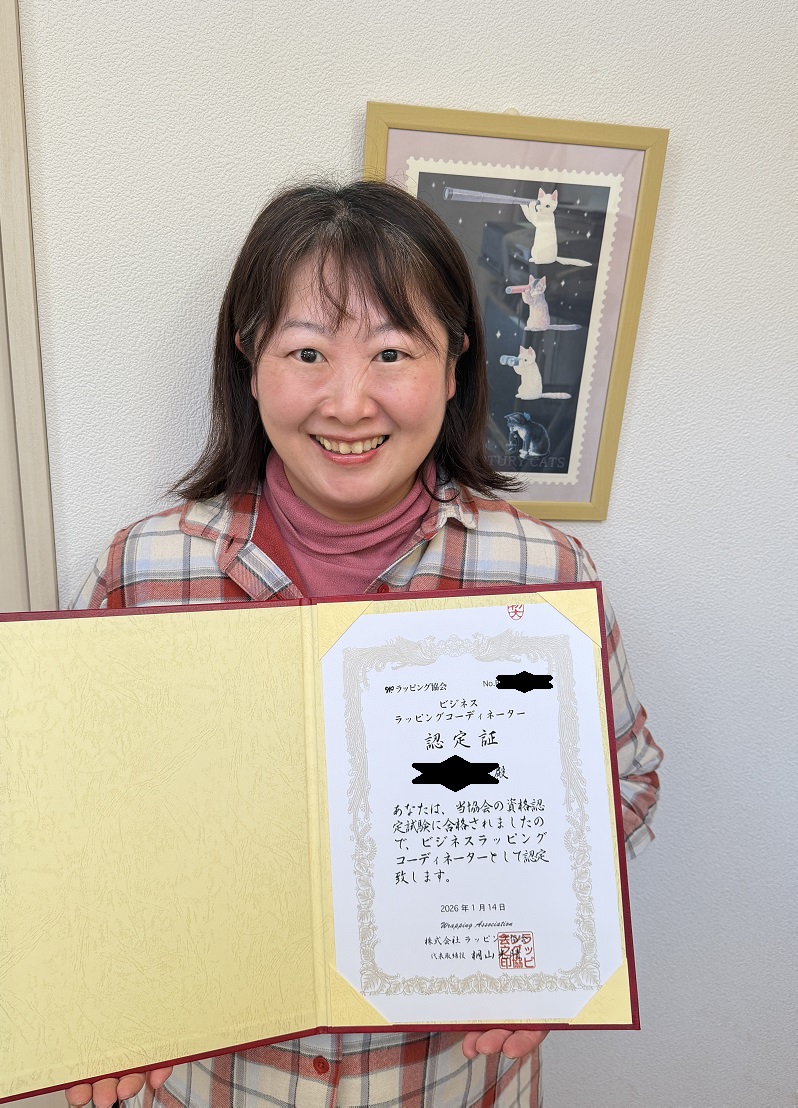 TURY CATS
ラッピング協会
No.
ビジネス
ラッピングコーディネーター
認定証
殿
あなたは、当協会の資格認
定試験に合格されましたの
で、ビジネスラッピング
コーディネーターとして認定
致します。
2026年1月14日
Wrapping Association
株式会社ラッピング
代表取締役 桐山